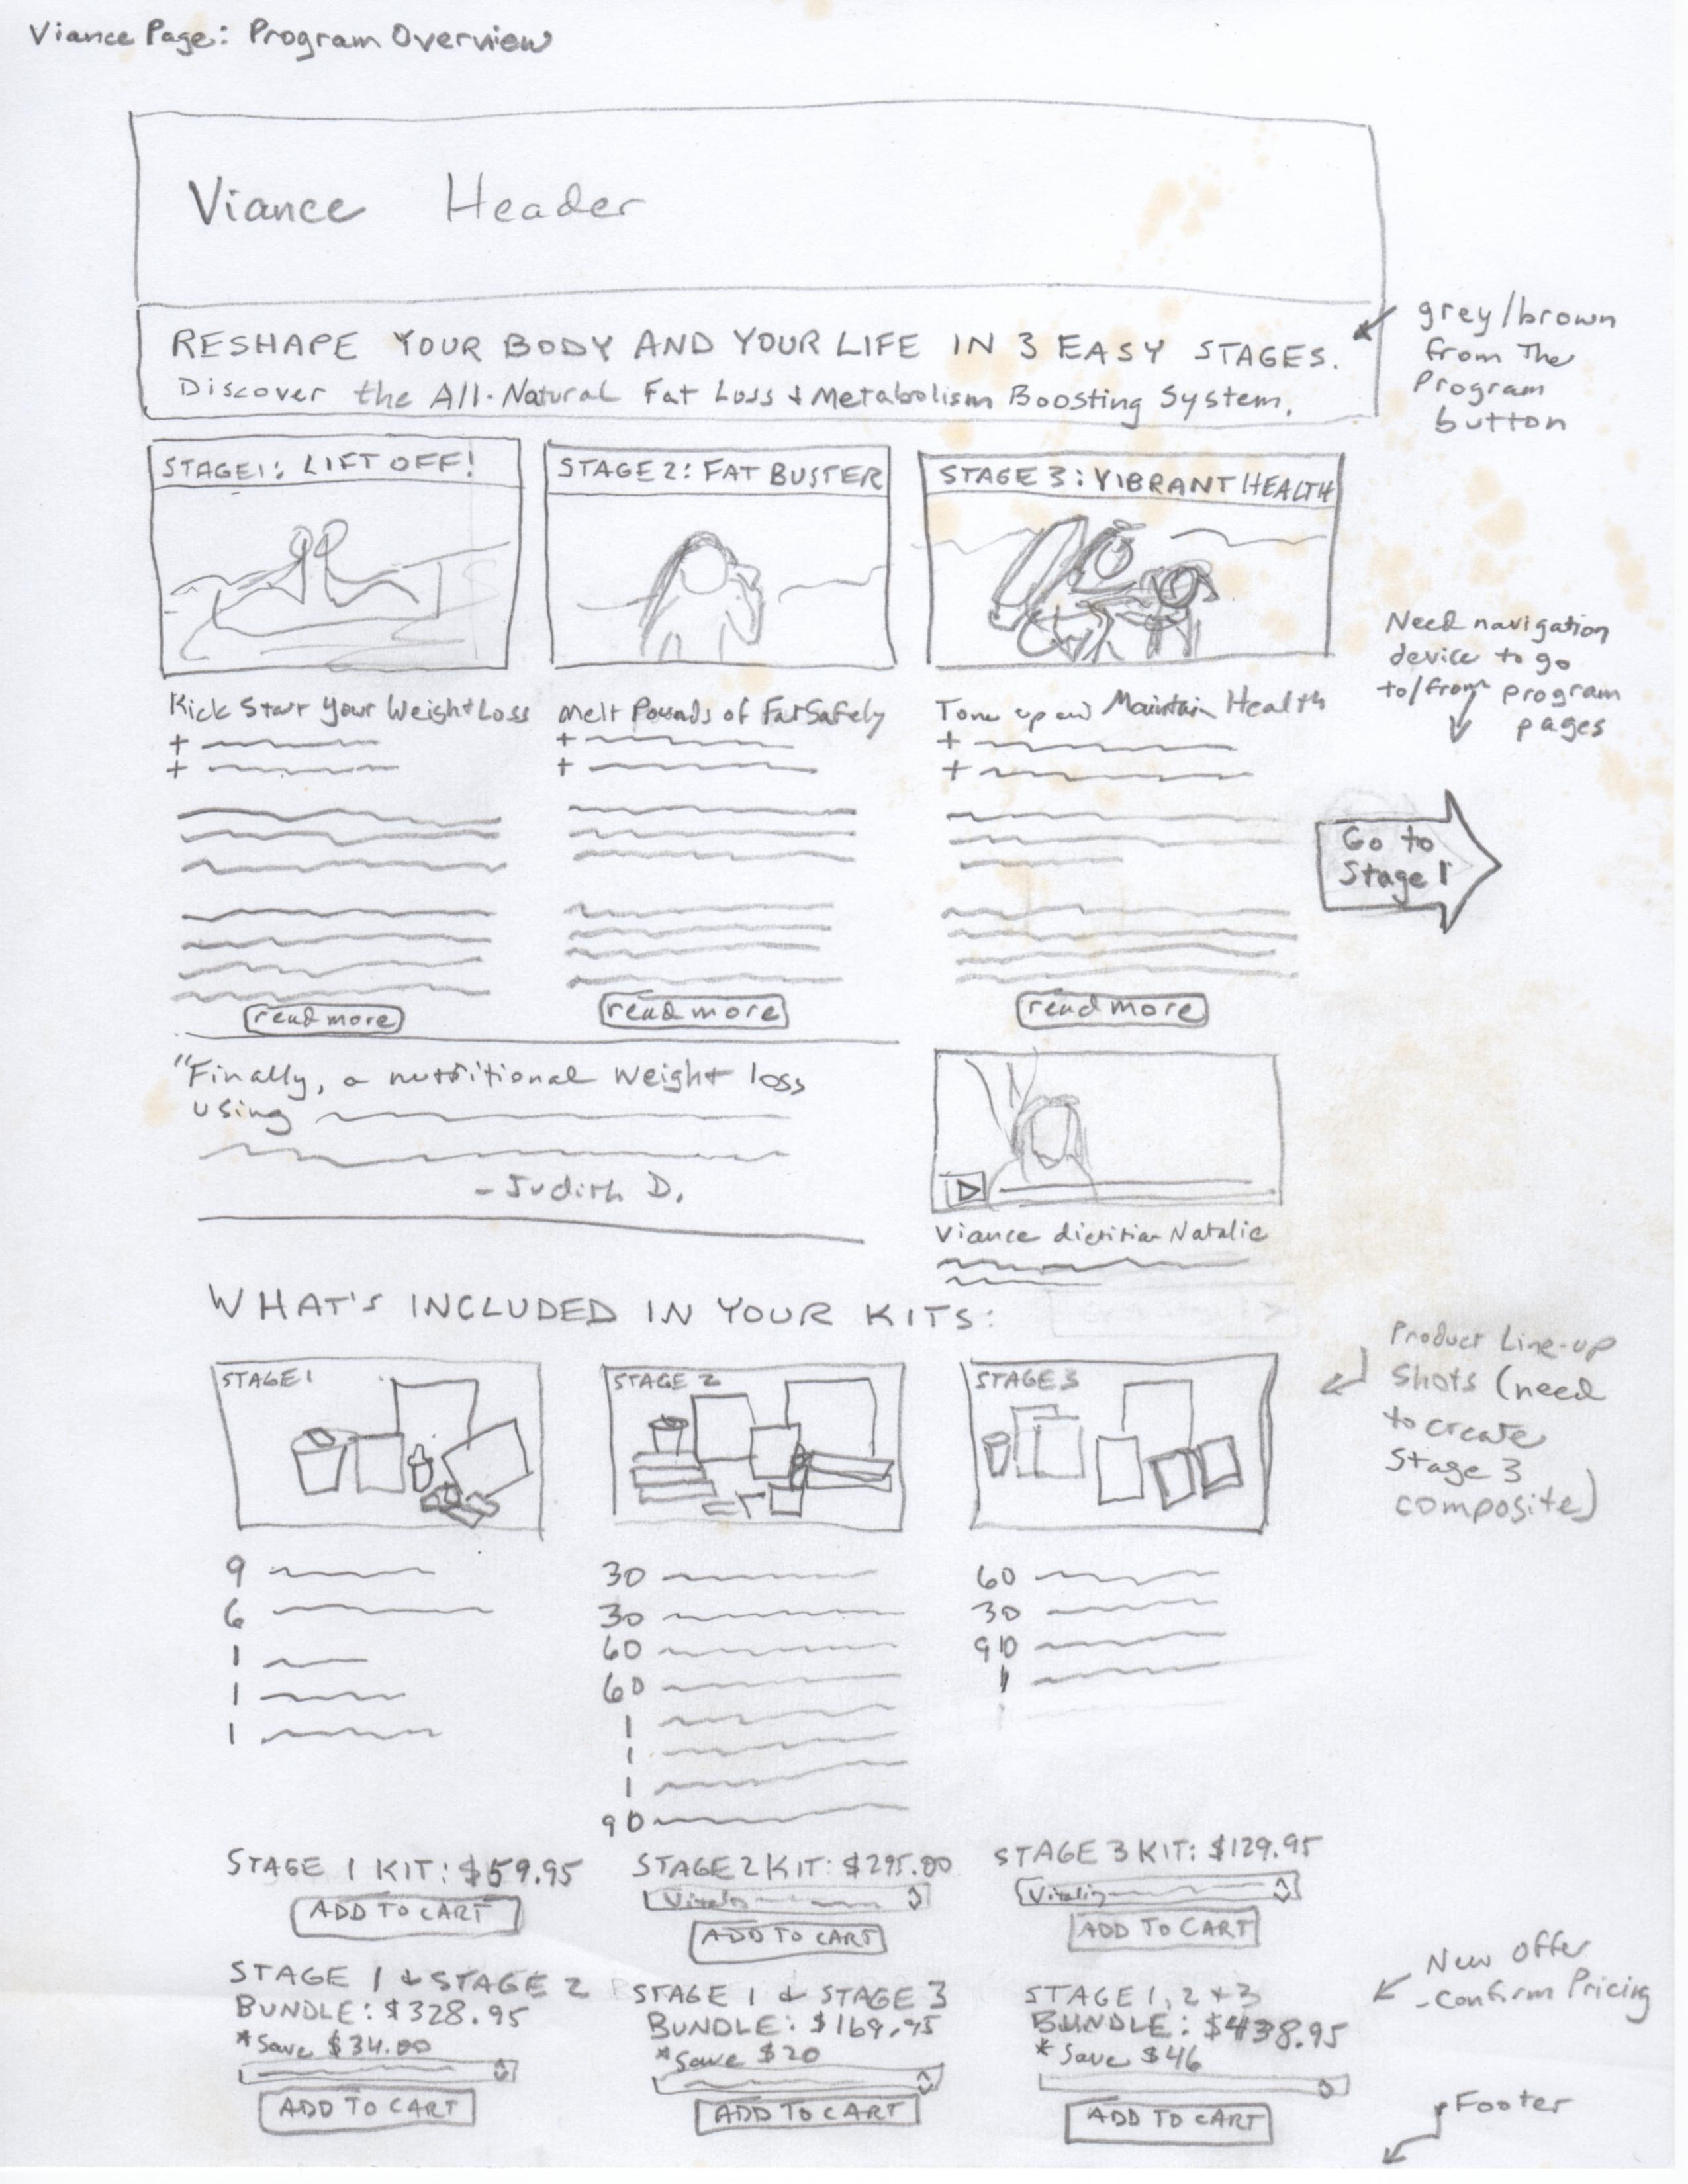 Viance Page: Program Overview
Viance Header
RESHAPE YOUR BODY AND YOUR LIFE IN 3 EASY STAGES.
Discover the All-Natural Fat Loss & Metabolism Boosting System.
grey/brown
from The
Program
button
STAGE 1: LIFT OFF!
STAGE 2: FAT BUSTER
STAGE 3: VIBRANT HEALTH
Need navigation
device to go
to/from program
pages
Kick Start Your Weight Loss
Melt Pounds of Fat Safely
Tone up and Maintain Health
+
+
+
+
+
+
Go to
Stage 1
read more
read more
read more
"Finally, a nutritional weight loss
using
- Judith D.
Viance dietitian Natalie
WHAT'S INCLUDED IN YOUR KITS:
Product Line-up
Shots (need
to create
Stage 3
composite)
STAGE 1
STAGE 2
STAGE 3
9
6
1
1
1
30
30
60
60
1
1
1
90
60
30
90
1
STAGE 1 KIT: $59.95
ADD TO CART
STAGE 2 KIT: $295.00
ADD TO CART
STAGE 3 KIT: $129.95
ADD TO CART
STAGE 1 & STAGE 2
BUNDLE: $328.95
*Save $34.00
ADD TO CART
STAGE 1 & STAGE 3
BUNDLE: $169.95
*Save $20
ADD TO CART
STAGE 1, 2 + 3
BUNDLE: $438.95
*Save $46
ADD TO CART
New Offer
- Confirm Pricing
Footer